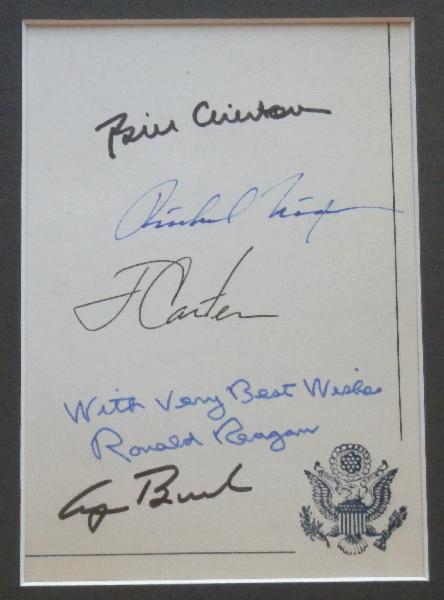 Bill Clinton
Richard Nixon
J Carter
With Very Best Wishes
Ronald Reagan
G Bush